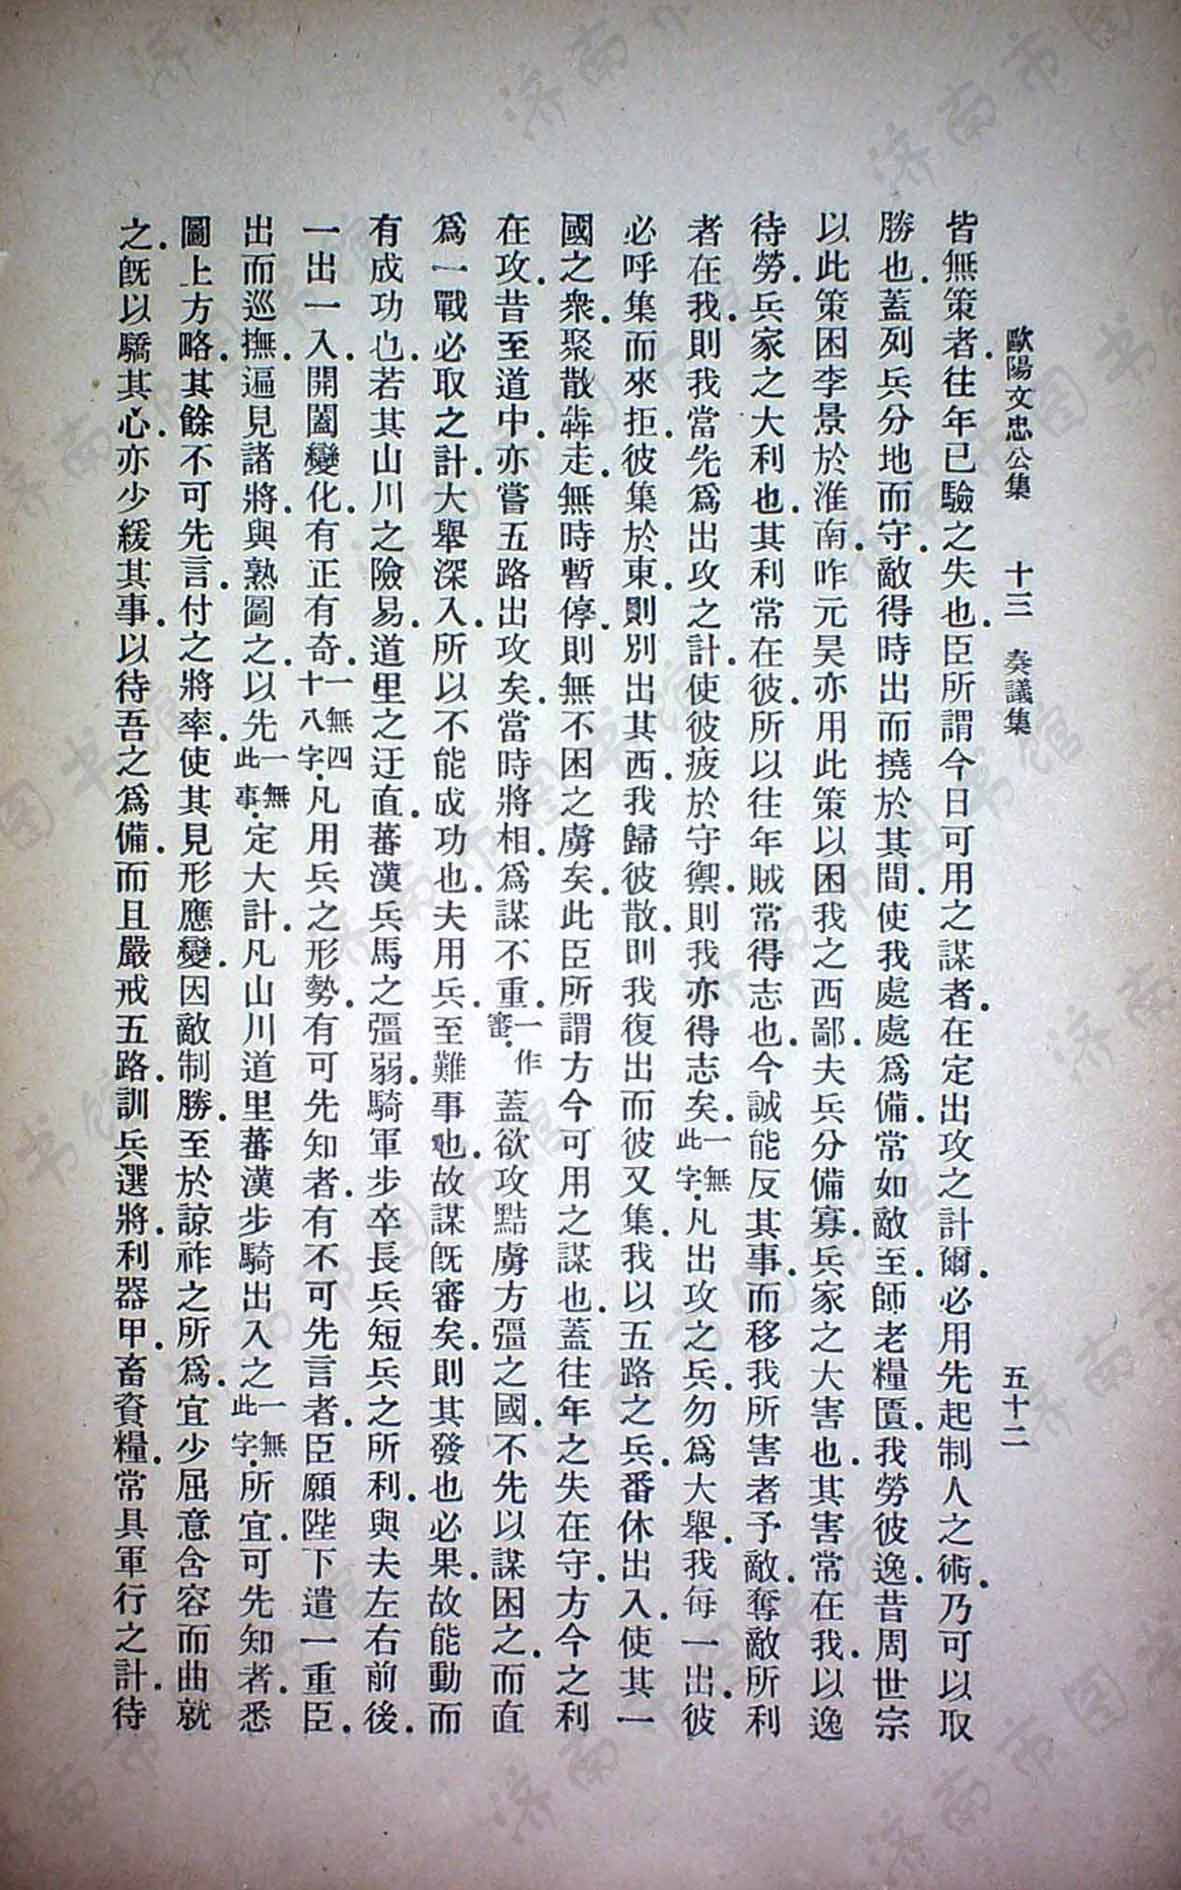 歐陽文忠公集　十三　奏議集　五十二
皆無策者．往年已驗之失也．臣所謂今日可用之謀者．在定出攻之計爾．必用先起制人之術．乃可以取
勝也．蓋列兵分地而守．敵得時出而撓於其間．使我處處爲備．常如敵至．師老糧匱．我勞彼逸．昔周世宗
以此策困李景於淮南．昨元昊亦用此策以困我之西鄙．夫兵分備寡．兵家之大害也．其害常在我．以逸
待勞．兵家之大利也．其利常在彼．所以往年賊常得志也．今誠能反其事．而移我所害者予敵．奪敵所利
者在我．則我當先爲出攻之計．使彼疲於守禦．則我亦得志矣．一無此字．凡出攻之兵．勿爲大舉．我每一出．彼
必呼集而來拒．彼集於東．則別出其西．我歸彼散．則我復出．而彼又集．我以五路之兵．番休出入．使其一
國之衆．聚散犇走．無時暫停．則無不困之虜矣．此臣所謂方今可用之謀也．蓋往年之失在守．方今之利
在攻．昔至道中．亦嘗五路出攻矣．當時將相．爲謀不重．一作審．蓋欲攻黠虜方彊之國．不先以謀困之．而直
爲一戰必取之計．大舉深入．所以不能成功也．夫用兵．至難事也．故謀既審矣．則其發也必果．故能動而
有成功也．若其山川之險易．道里之迂直．蕃漢兵馬之彊弱．騎軍步卒長兵短兵之所利．與夫左右前後．
一出一入．開闔變化．有正有奇．一無四十八字．凡用兵之形勢．有可先知者．有不可先言者．臣願陛下遣一重臣．
出而巡撫．遍見諸將．與熟圖之．以先一無此事．定大計．凡山川道里蕃漢步騎出入之一無此字．所宜．可先知者．悉
圖上方略．其餘不可先言．付之將率．使其見形應變．因敵制勝．至於諒祚之所爲．宜少屈意含容而曲就
之．既以驕其心．亦少緩其事．以待吾之爲備．而且嚴戒五路．訓兵選將．利器甲．畜資糧．常具軍行之計．待